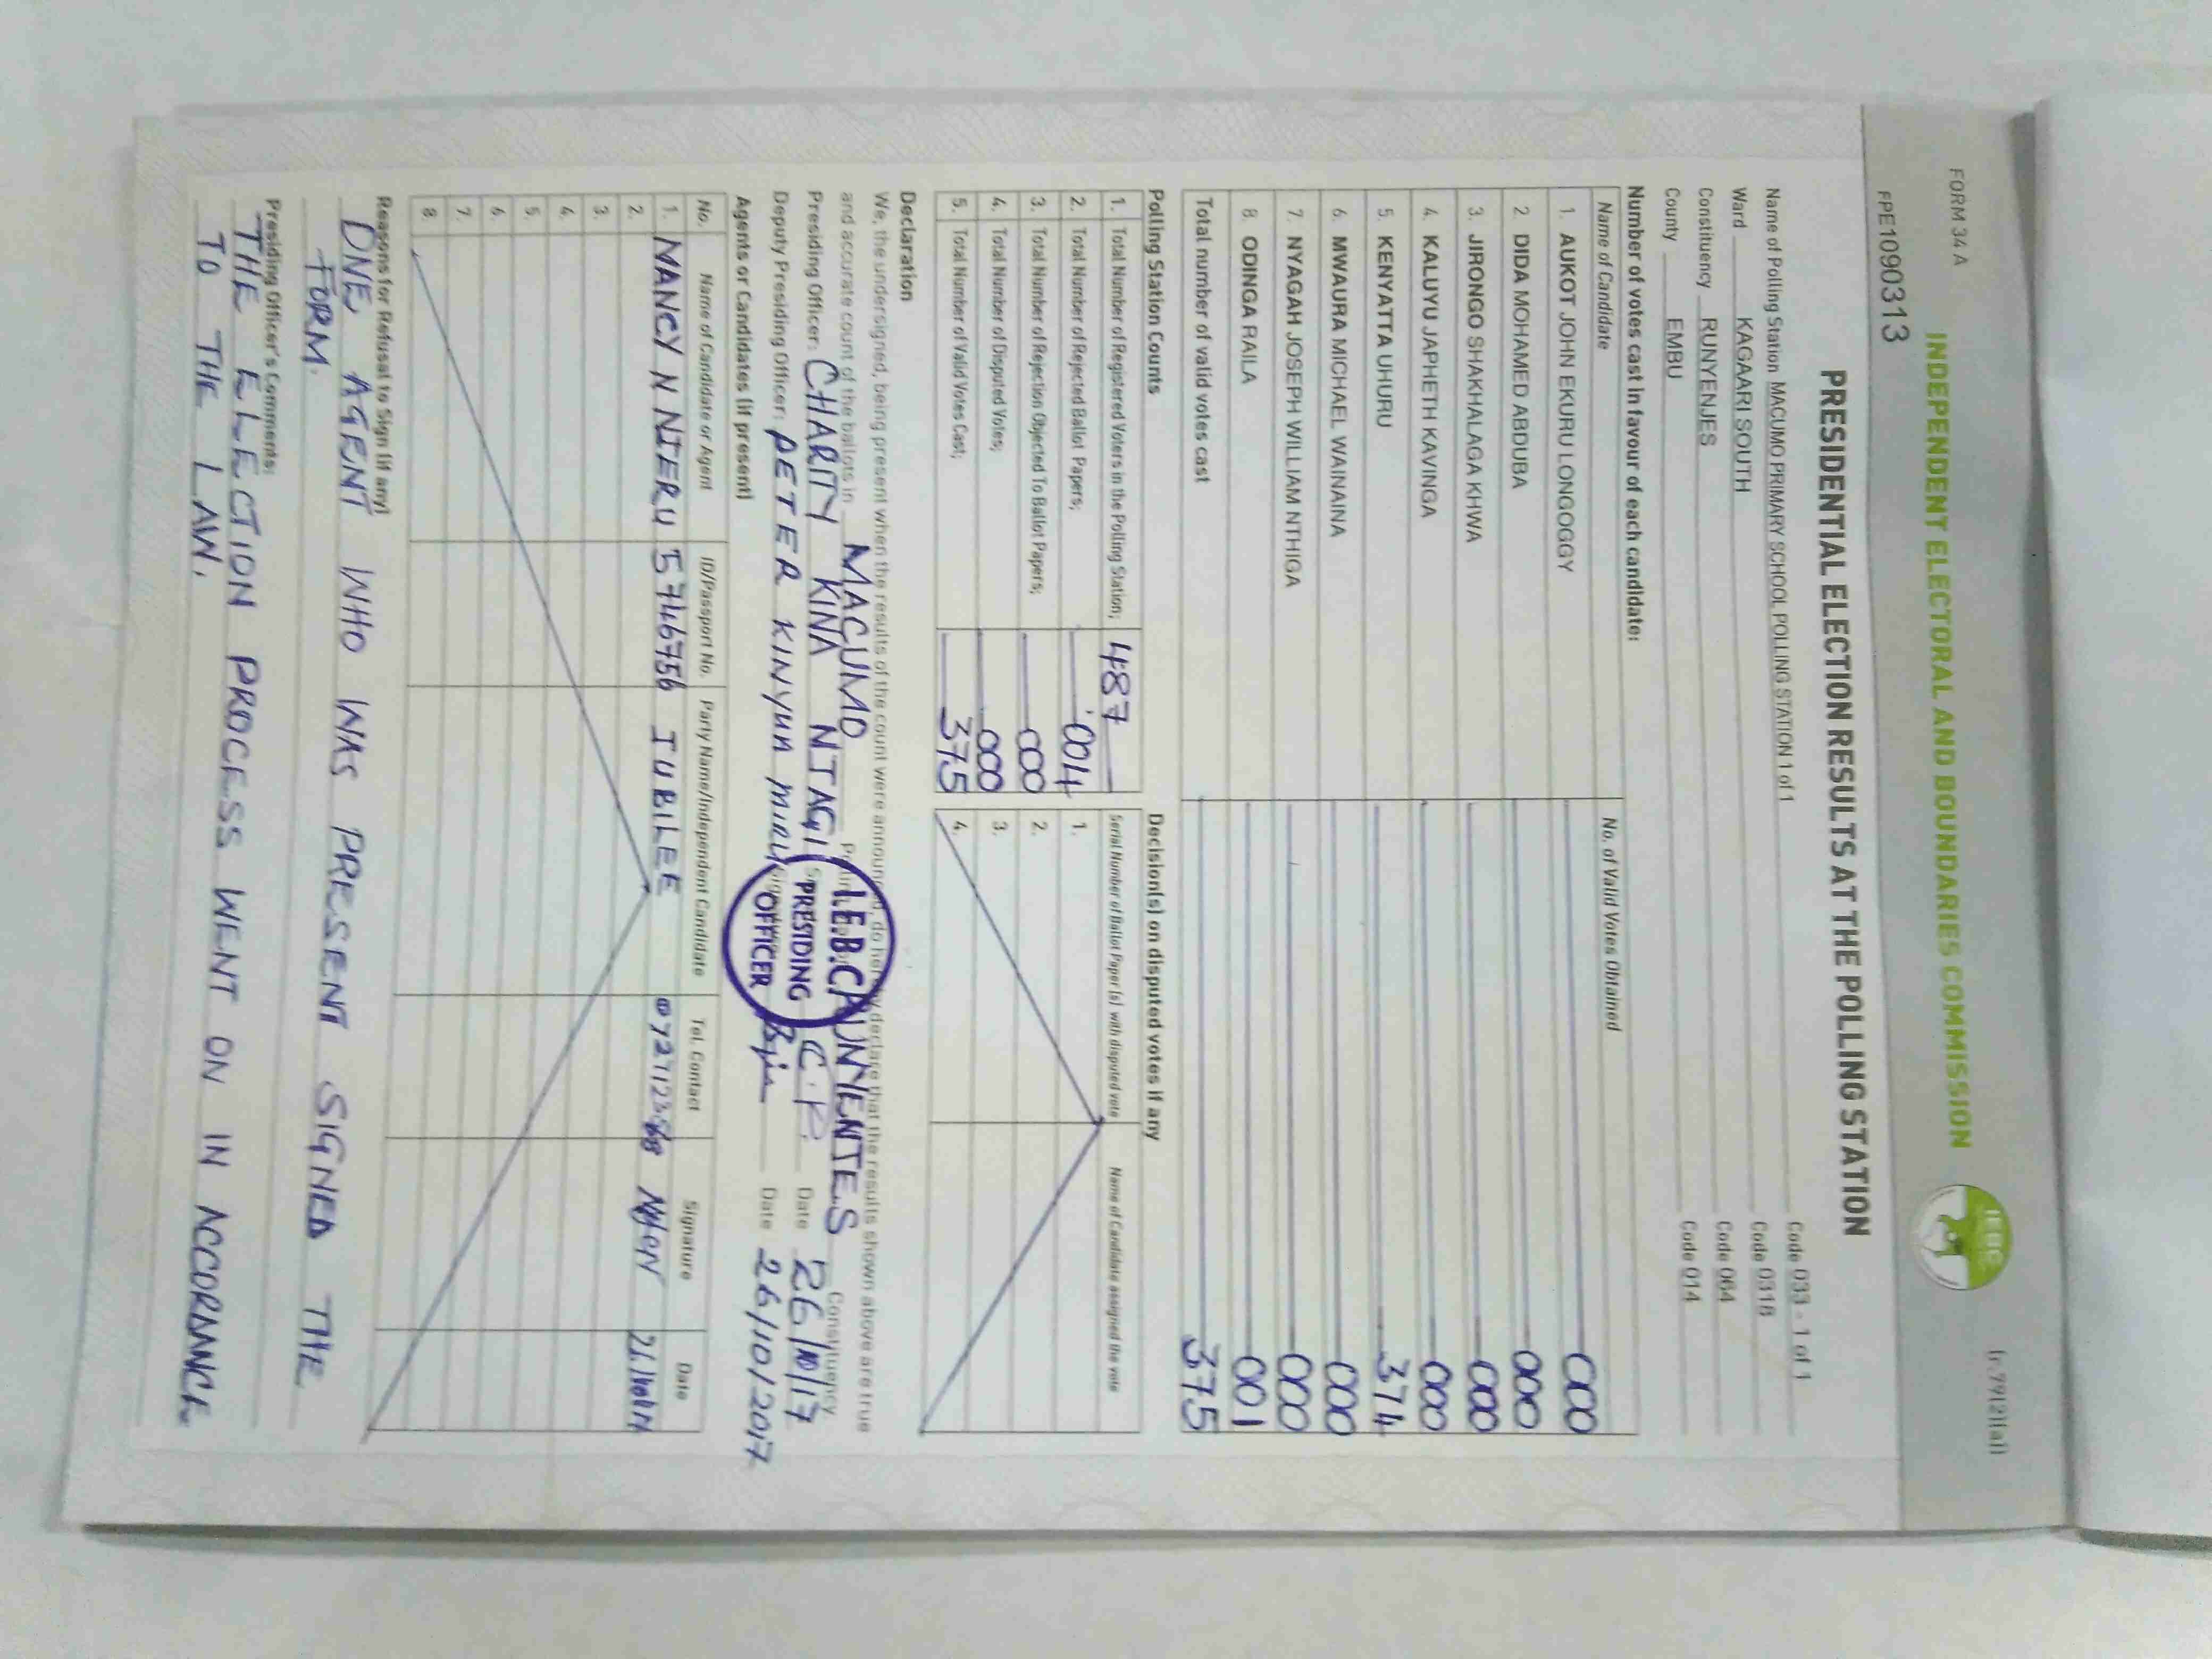 FORM 34 A
(r.79(2)(a))
INDEPENDENT ELECTORAL AND BOUNDARIES COMMISSION
IEBC
FPE1090313
PRESIDENTIAL ELECTION RESULTS AT THE POLLING STATION
Name of Polling Station MACUMO PRIMARY SCHOOL POLLING STATION 1 of 1 Code 033 - 1 of 1
Ward KAGAARI SOUTH Code 0318
Constituency RUNYENJES Code 064
County EMBU Code 014
Number of votes cast in favour of each candidate:
Name of Candidate No. of Valid Votes Obtained
1. AUKOT JOHN EKURU LONGOGGY 000
2. DIDA MOHAMED ABDUBA 000
3. JIRONGO SHAKHALAGA KHWA 000
4. KALUYU JAPHETH KAVINGA 000
5. KENYATTA UHURU 374
6. MWAURA MICHAEL WAINAINA 000
7. NYAGAH JOSEPH WILLIAM NTHIGA 000
8. ODINGA RAILA 001
Total number of valid votes cast 375
Polling Station Counts
1. Total Number of Registered Voters in the Polling Station; 487
2. Total Number of Rejected Ballot Papers; 004
3. Total Number of Rejection Objected To Ballot Papers; 000
4. Total Number of Disputed Votes; 000
5. Total Number of Valid Votes Cast; 375
Decision(s) on disputed votes if any
Serial Number of Ballot Paper (s) with disputed vote Name of Candidate assigned the vote
1.
2.
3.
4.
Declaration
We, the undersigned, being present when the results of the count were announced, do hereby declare that the results shown above are true
and accurate count of the ballots in MACUMO Polling Station RUNYENJES Constituency
Presiding Officer: CHARITY KINA NJAGI C.K. Date 26/10/17
Deputy Presiding Officer: PETER KINYUA Date 26/10/2017
I.E.B.C
PRESIDING
OFFICER
Agents or Candidates (if present)
No. Name of Candidate or Agent ID/Passport No. Party Name/Independent Candidate Tel. Contact Signature Date
1. NANCY N NJERU 5746756 JUBILEE
2.
3.
4.
5.
6.
7.
8.
Reasons for Refusal to Sign (if any)
ONE AGENT WHO WAS PRESENT SIGNED THE
FORM.
Presiding Officer's Comments:
THE ELECTION PROCESS WENT ON IN ACCORDANCE
TO THE LAW.